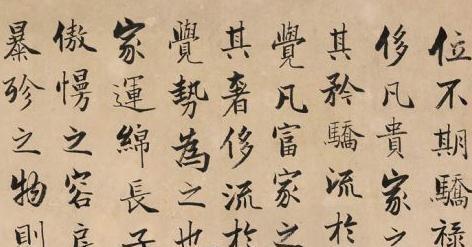 位不期驕祿
侈凡貴家之
其矜驕流於
覺凡富家之
其奢侈流於
覺勢為之也
家運綿長子
傲慢之容
暴殄之物則